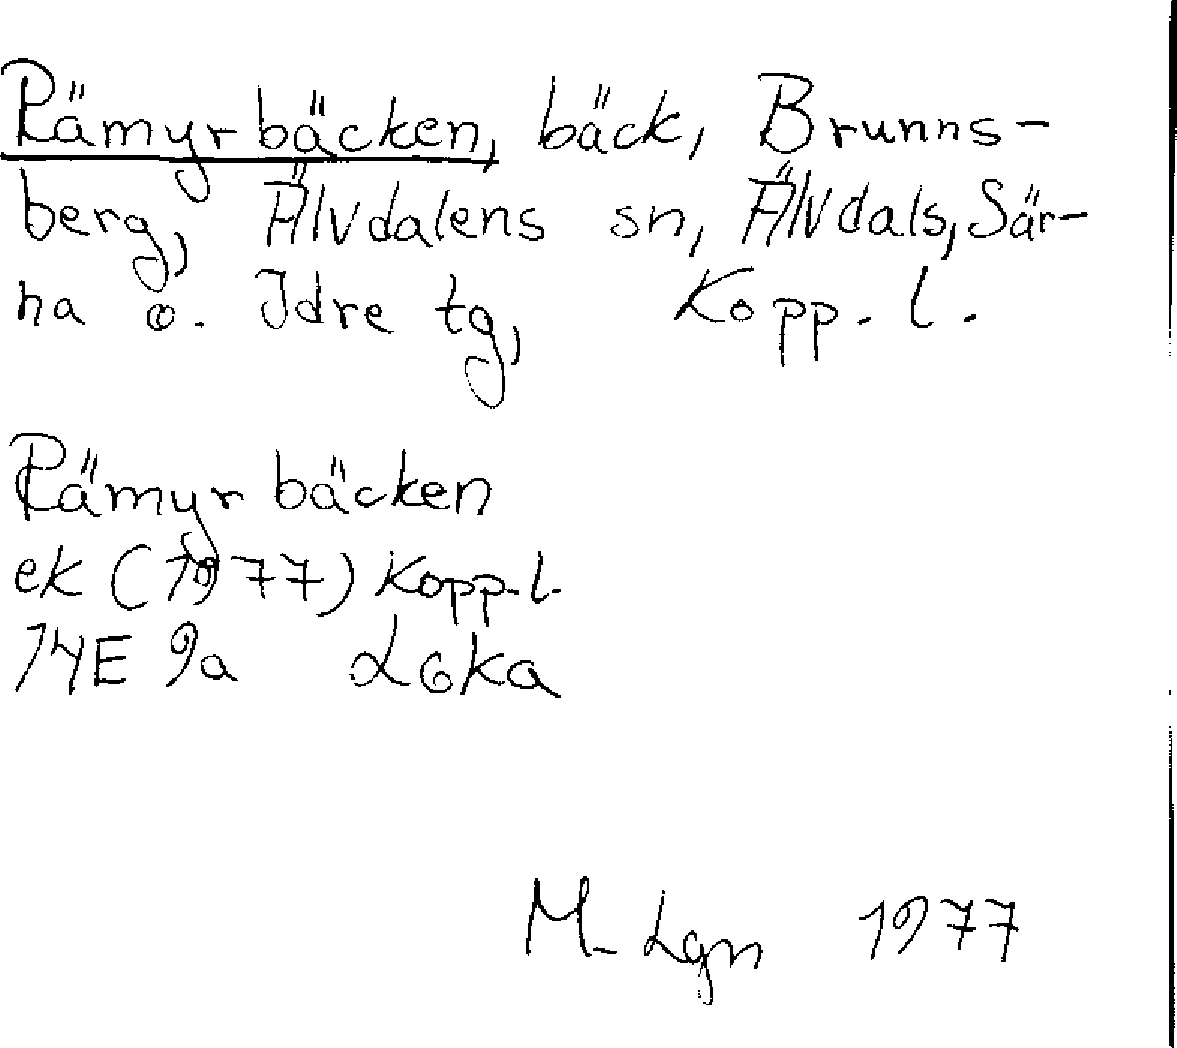 Rämyrbäcken, bäck, Brunns-
berg, Älvdalens sn, Älvdals, Sär-
na o. Idre tg, Kopp. l.
Rämyrbäcken
ek (1977) Kopp. l.
14E 9a L6ka
M. Lgn 1977